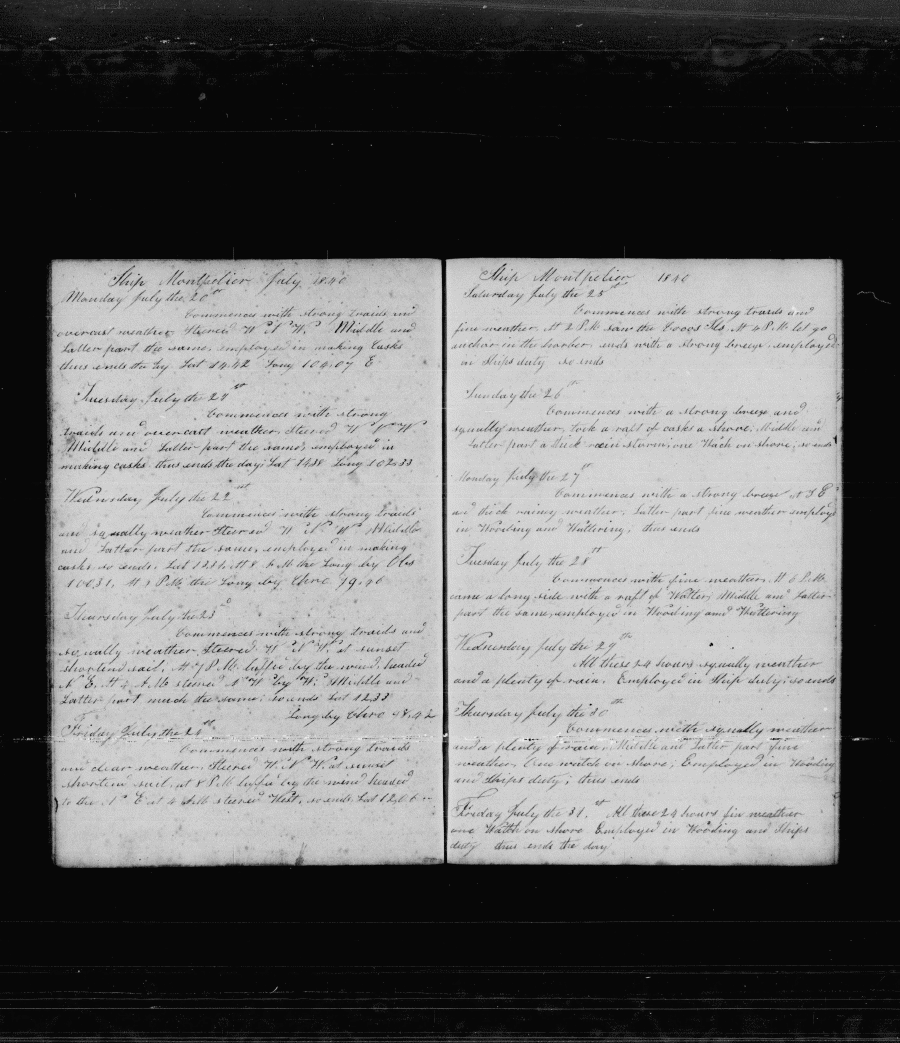 Ship Montpelier July 1840
Monday July the 20th
Commences with strong traids and
overcast weather Steered W N W. Middle and
Latter part the same, employed in making Casks
thus ends the day Lat 14.42 Long 104.07 E
Tuesday July the 21st
Commences with strong
traids and overcast weather Steered W N W
Middle and Latter part the same, employed in
making casks. thus ends the day; Lat 1438 Long 102.33
Wednesday July the 22
Commences with strong traids
and squally weather Steered W N W Middle
and Latter part the same, employed in making
casks. so ends. Lat 1331. At 8 A M the Long by Obs
At 3 P.M. the Long by Chro
Thursday July the 23d
Commences with strong traids and
squally weather, Steered W N W. at sunset
shortend sail. At 7 P.M. luffed by the wind, headed
N E. At 4 A.M. steered N W by W: Middle and
Latter part much the same: so ends Lat 1233
Long by Chro 98.42
Friday July the 24th
Commences with strong traids
and clear weather. Steered W. N W. at sunset
shortend sail. at 8 P.M. luffed by the wind headed
to the N E at 4 A M steered West, so ends Lat 12.06
Ship Montpelier 1840
Saturday July the 25th
Commences with strong traids and
fine weather. At 2 P.M. saw the Cocos Ils. At 4 P.M. let go
anchor in the harber. ends with a strong breeze. employed
in Ships duty so ends
Sunday the 26th
Commences with a strong breeze and
squally weather, took a raft of casks a shore. Middle and
Latter part a thick rain storm; one Wach on shore; so ends
Monday July the 27th
Commences with a strong breeze at S E
and thick rainy weather. Latter part fine weather employd
in Wooding and Wattering; thus ends
Tuesday July the 28th
Commences with fine weather. At 6 P.M.
came a long side with a raft of Watter; Middle and Latter
part the same, employed in Wooding and Wattering
Wednesday July the 29th
All these 24 hours squally weather
and a plenty of rain. Employed in Ship duty; so ends
Thursday July the 30th
Commences with squally weather
and a plenty of rain; Middle and Latter part fine
weather, One watch on shore; Employed in Wooding
and Ships duty; thus ends
Friday July the 31.st All these 24 hours fin weather
one Watch on shore Employed in Wooding and Ships
duty thus ends the day